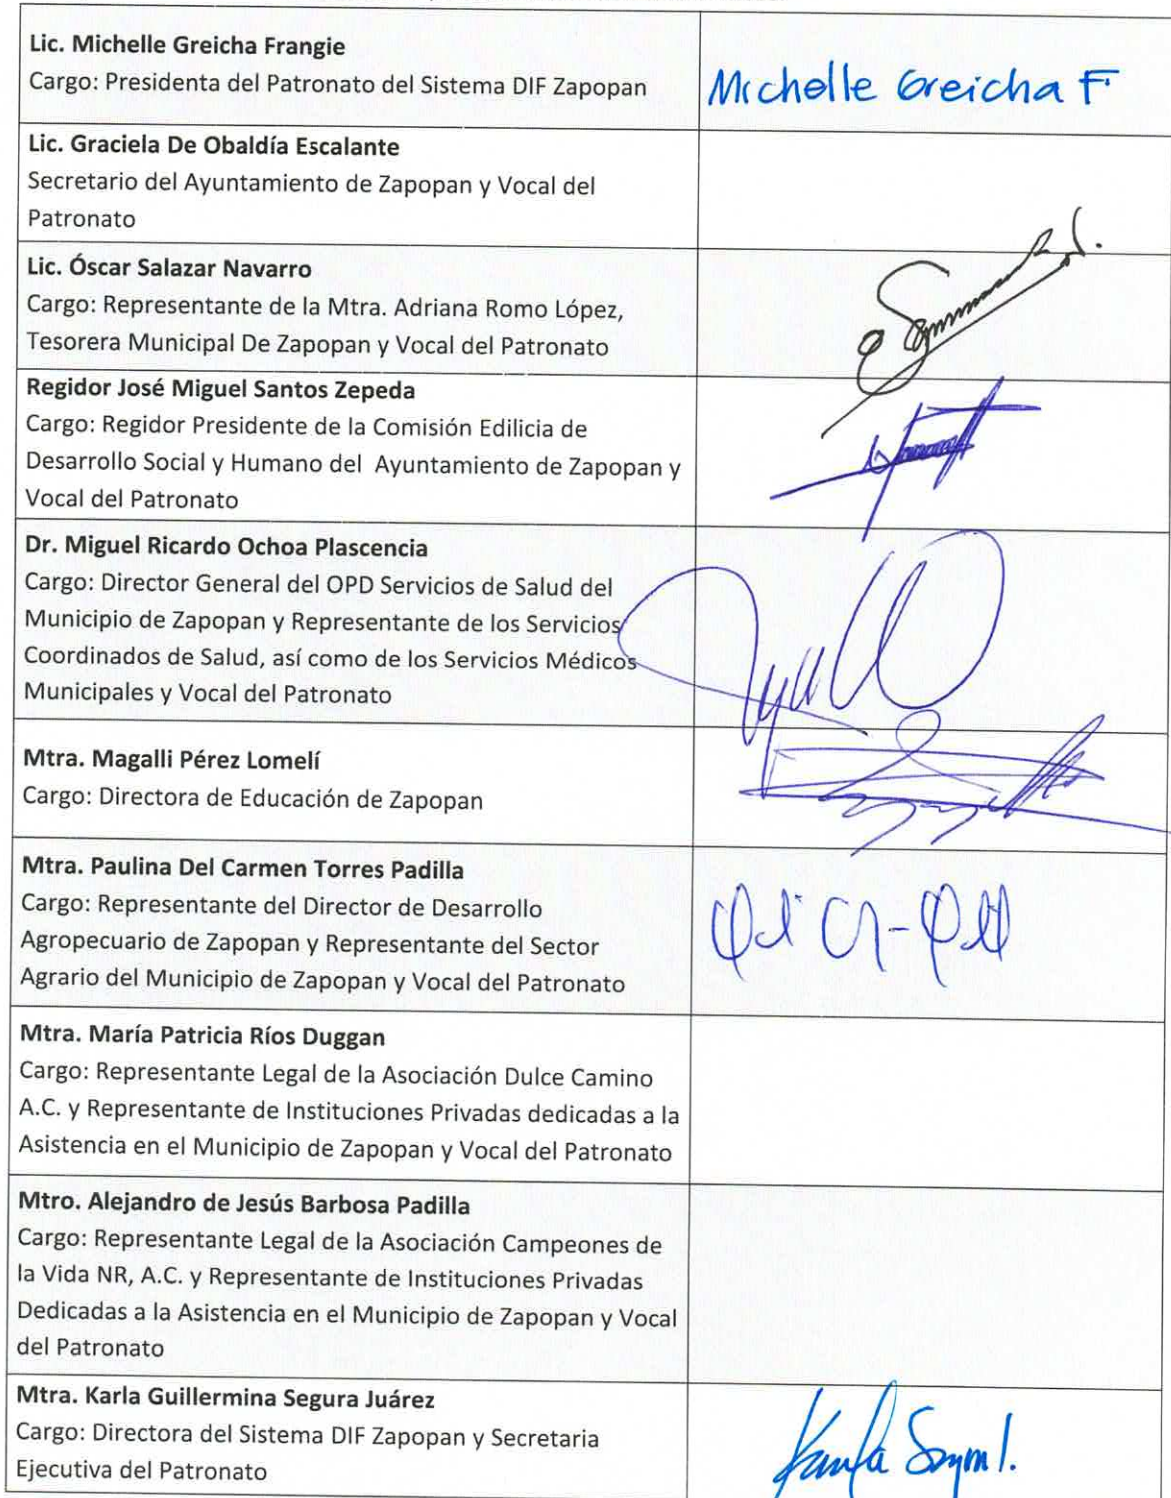 Lic. Michelle Greicha Frangie
Cargo: Presidenta del Patronato del Sistema DIF Zapopan
Michelle Greicha F.
Lic. Graciela De Obaldía Escalante
Secretario del Ayuntamiento de Zapopan y Vocal del
Patronato
Lic. Óscar Salazar Navarro
Cargo: Representante de la Mtra. Adriana Romo López,
Tesorera Municipal De Zapopan y Vocal del Patronato
Regidor José Miguel Santos Zepeda
Cargo: Regidor Presidente de la Comisión Edilicia de
Desarrollo Social y Humano del Ayuntamiento de Zapopan y
Vocal del Patronato
Dr. Miguel Ricardo Ochoa Plascencia
Cargo: Director General del OPD Servicios de Salud del
Municipio de Zapopan y Representante de los Servicios
Coordinados de Salud, así como de los Servicios Médicos
Municipales y Vocal del Patronato
Mtra. Magalli Pérez Lomelí
Cargo: Directora de Educación de Zapopan
Mtra. Paulina Del Carmen Torres Padilla
Cargo: Representante del Director de Desarrollo
Agropecuario de Zapopan y Representante del Sector
Agrario del Municipio de Zapopan y Vocal del Patronato
Mtra. María Patricia Ríos Duggan
Cargo: Representante Legal de la Asociación Dulce Camino
A.C. y Representante de Instituciones Privadas dedicadas a la
Asistencia en el Municipio de Zapopan y Vocal del Patronato
Mtro. Alejandro de Jesús Barbosa Padilla
Cargo: Representante Legal de la Asociación Campeones de
la Vida NR, A.C. y Representante de Instituciones Privadas
Dedicadas a la Asistencia en el Municipio de Zapopan y Vocal
del Patronato
Mtra. Karla Guillermina Segura Juárez
Cargo: Directora del Sistema DIF Zapopan y Secretaria
Ejecutiva del Patronato
Karla